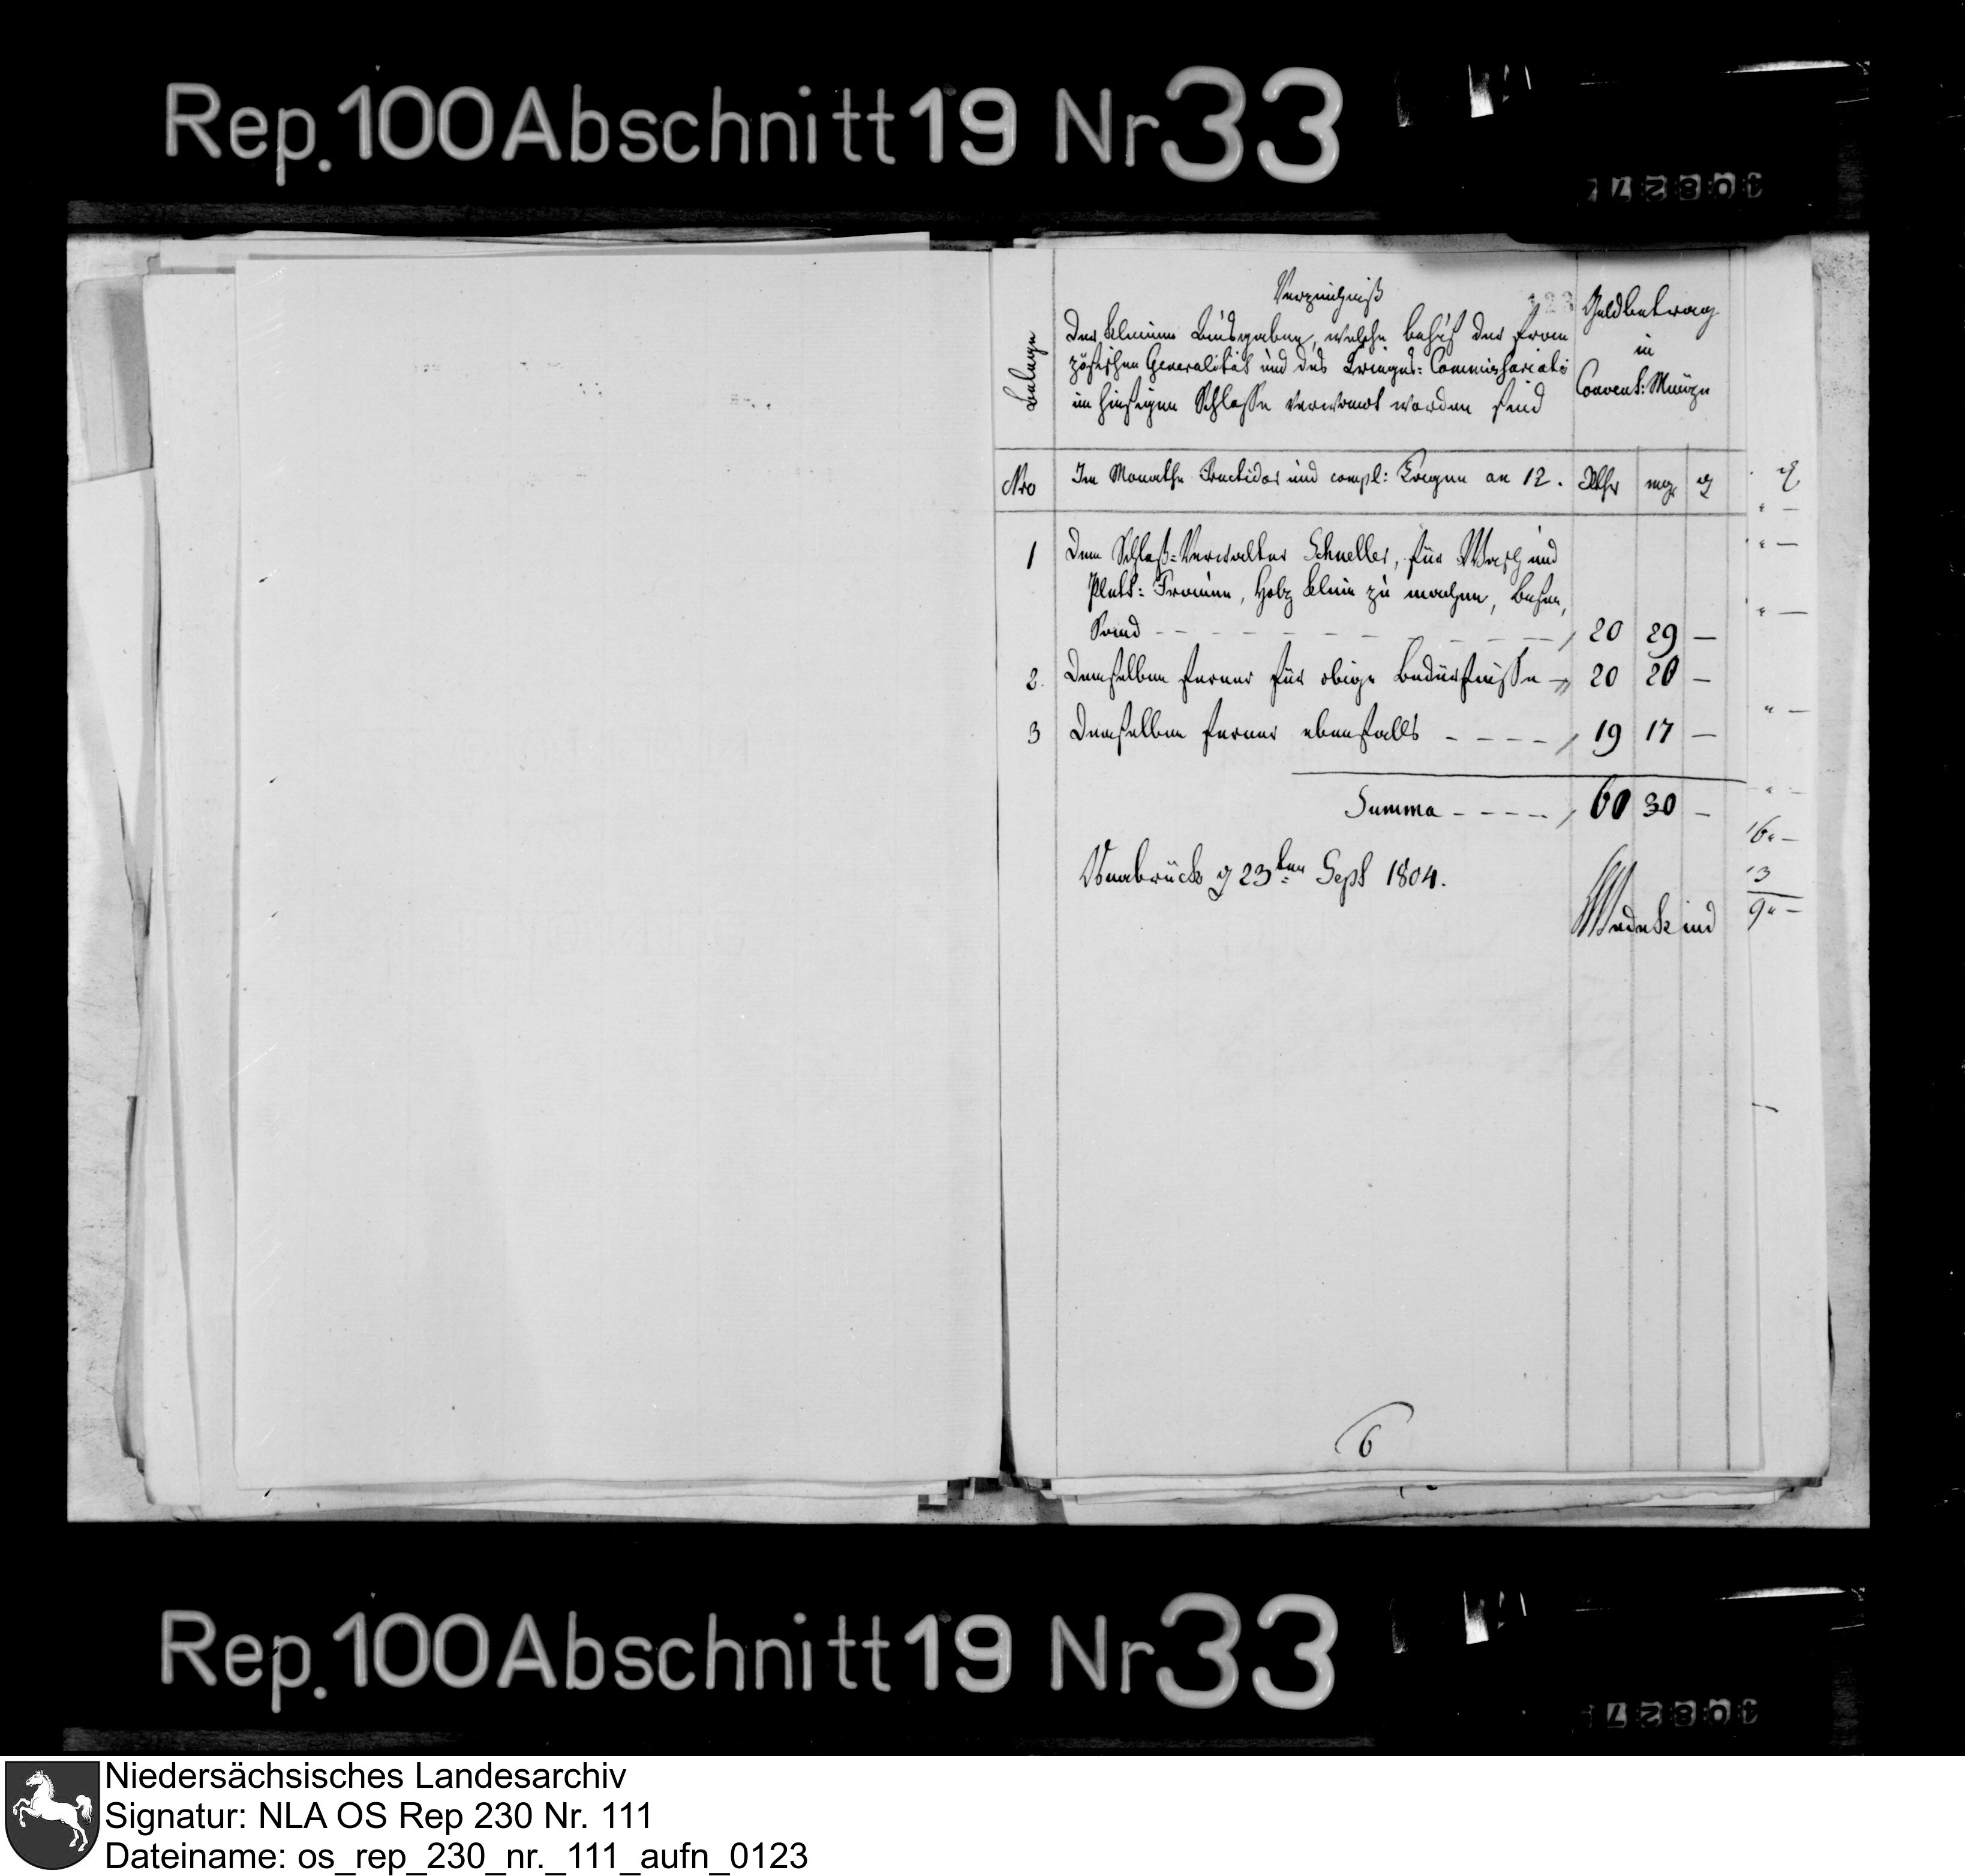 Rep. 100 Abschnitt 19 Nr 33
Verzeichniß
Der kleinen Ausgaben, welche behuf der Fran
zösischen Generalität und des Kriegs: Commissariats
im hiesigen Schlosse verwandt worden sind
Belege
Geldbetrag
in
Convent: Münze
Nro
Im Monathe Fructidor und compl: Tagen an 12.
Rthr mgr ₰
1 Dem Schloß-Verwalter Schneller, für Wasch und
Plett: Frauen, Holz klein zu machen, Besen,
Sand - - - - 20 29 —
2. Demselben ferner für obige Bedürfnisse 20 20 —
3 Demselben ferner ebenfalls - - - - 19 17 —
Summa - - - - 60 30 —
Osnabrück d 23ten Sept 1804.
Wedekind
6
Rep. 100 Abschnitt 19 Nr 33
Niedersächsisches Landesarchiv
Signatur: NLA OS Rep 230 Nr. 111
Dateiname: os_rep_230_nr._111_aufn_0123